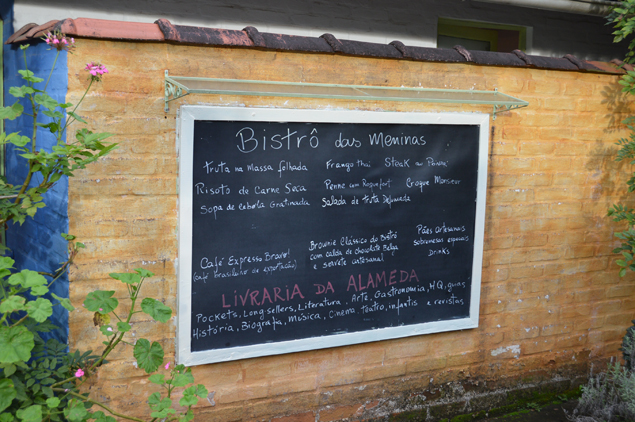 Bistrô das Meninas
Truta na Massa folhada Frango thai Steak au Poivre
Risoto de Carne Seca Penne com Roquefort Croque Monsieur
Sopa de cebola Gratinada Salada de truta Defumada
Café Expresso Bravo!
(café brasileiro de exportação)
Brownie Clássico do Bistrô
com calda de chocolate Belga
e sorvete artesanal
Pães Artesanais
sobremesas especiais
Drinks
LIVRARIA DA ALAMEDA
Pockets, Long sellers, Literatura, Arte, Gastronomia, HQ, guias
História, Biografia, Música, Cinema, Teatro, infantis e revistas